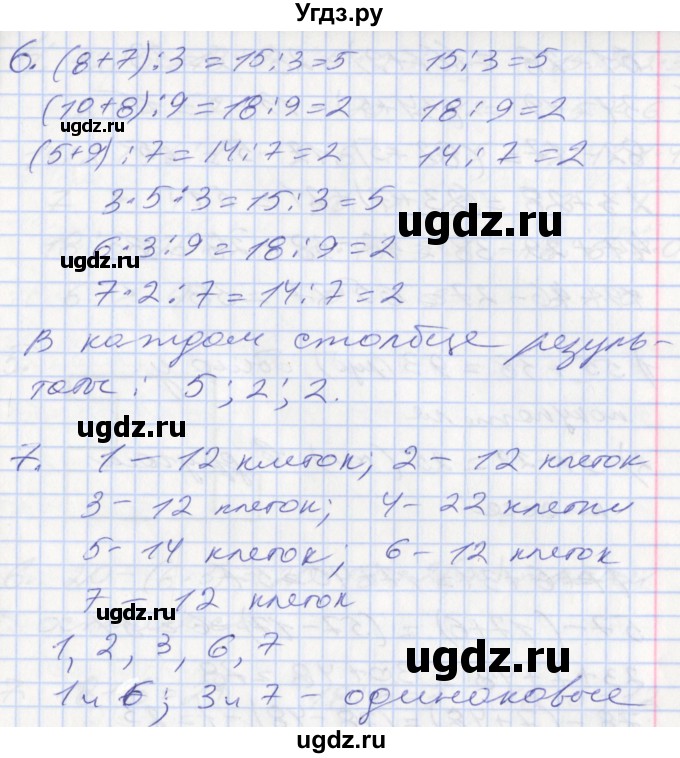 Угдз.ру
6. (8+7):3 = 15:3=5 15:3=5
(10+8):9 = 18:9=2 18:9=2
ugdz.ru
(5+9):7=14:7=2 14:7=2
3·5:3=15:3=5
ugdz.ru
6·3:9=18:9=2
ugdz.ru
7·2:7=14:7=2
В каждом столбце резуль-
таты: 5; 2; 2.
ugdz.ru
7. 1 – 12 клеток; 2 – 12 клеток
3 – 12 клеток; 4 – 22 клетки
5 – 14 клеток; 6 – 12 клеток
7 – 12 клеток
ugdz.ru
1, 2, 3, 6, 7
ugdz.ru
1 и 6; 3 и 7 – одинаковые
ugdz.ru